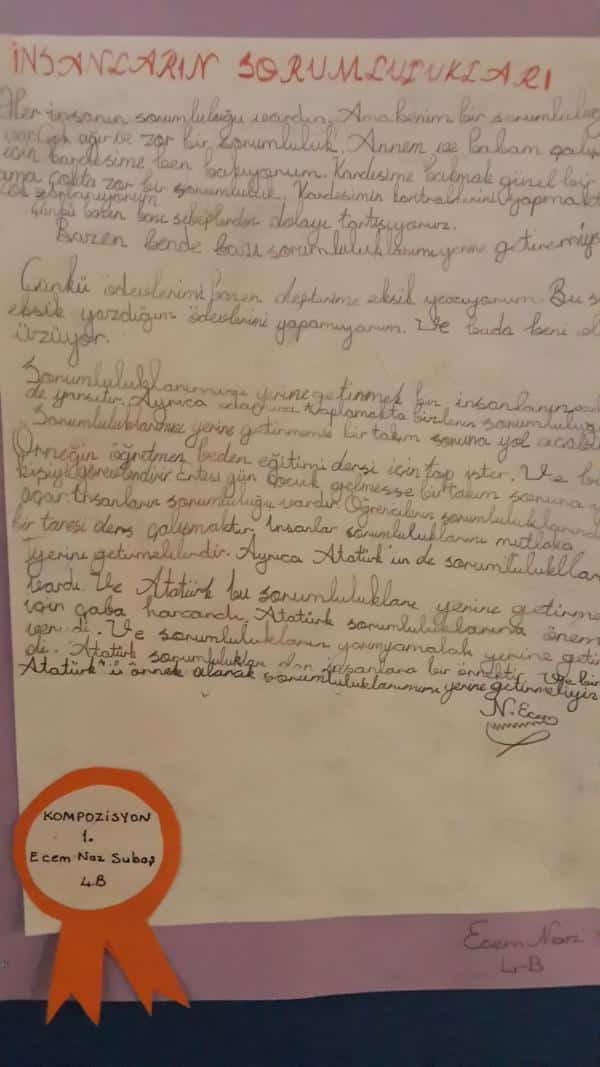 İNSANLARIN SORUMLULUKLARI
Her insanın sorumluluğu vardır. Ama benim bir sorumluluğ
var çok ağır ve zor bir sorumluluk. Annem ve babam çalış
için kardeşime ben bakıyorum. Kardeşime bakmak güzel bir
ama çokta zor bir sorumluluk. Kardeşimin kontrollerini yapmakt
çok zorlanıyorum
Çünkü bazen bazı sebeplerden dolayı tartışıyoruz.
Bazen bende bazı sorumluluklarımı yerine getiremiyo
Çünkü ödevlerimi bazen defterime eksik yazıyorum. Bu s
eksik yazdığım ödevlerimi yapamıyorum. Ve buda beni
üzüyor.
Sorumluluklarımızı yerine getirmek bir insanların
de yansıtır. Ayrıca toplamakta bizlerin sorumluluğ
Sorumluluklarımızı yerine getirmeme bir takım soruna yol acabi
Örneğin öğretmen beden eğitimi dersi için top ister. Ve bi
kişiyi görevlendirir Ertesi gün çocuk gelmesse bir takım soruna y
açar. İnsanların sorumluluğu vardır. Öğrencilerin sorumluluklarında
bir tanesi ders çalışmaktır. İnsanlar sorumluluklarını mutlaka
yerine getirmelilerdir. Ayrıca Atatürk'ün de sorumlulukllar
vardı. Ve Atatürk bu sorumlulukları yerine getirme
için çaba harcandı. Atatürk sorumluluklarına önem
ver di. Ve sorumluluklarını yerine getir
di. Atatürk sorumlulukları dan insanlara bir örnektir. Ve biz
Atatürk'ü örnek alarak sorumluluklarımızı yerine getirmeliyiz
N. Ecem
KOMPOZİSYON
1.
Ecem Naz Subaş
4.B
Ecem Naz
4-B